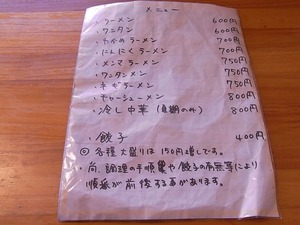 メニュー
・ラーメン 600円
・ワンタン 600円
・わかめラーメン 700円
・にんにくラーメン 700円
・メンマラーメン 750円
・ワンタンメン 750円
・ネギラーメン 750円
・チャーシューメン 800円
・冷し中華（夏期のみ） 800円
・餃子 400円
◎各種大盛りは150円増しです。
・尚、調理の手順や餃子の有無等により
順番が前後する事があります。